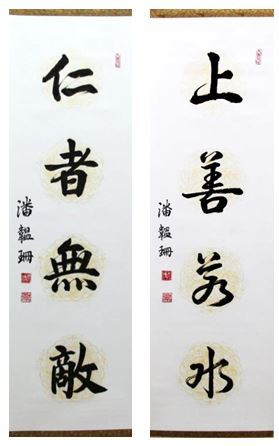 上善若水
潘韞珊
仁者無敵
潘韞珊